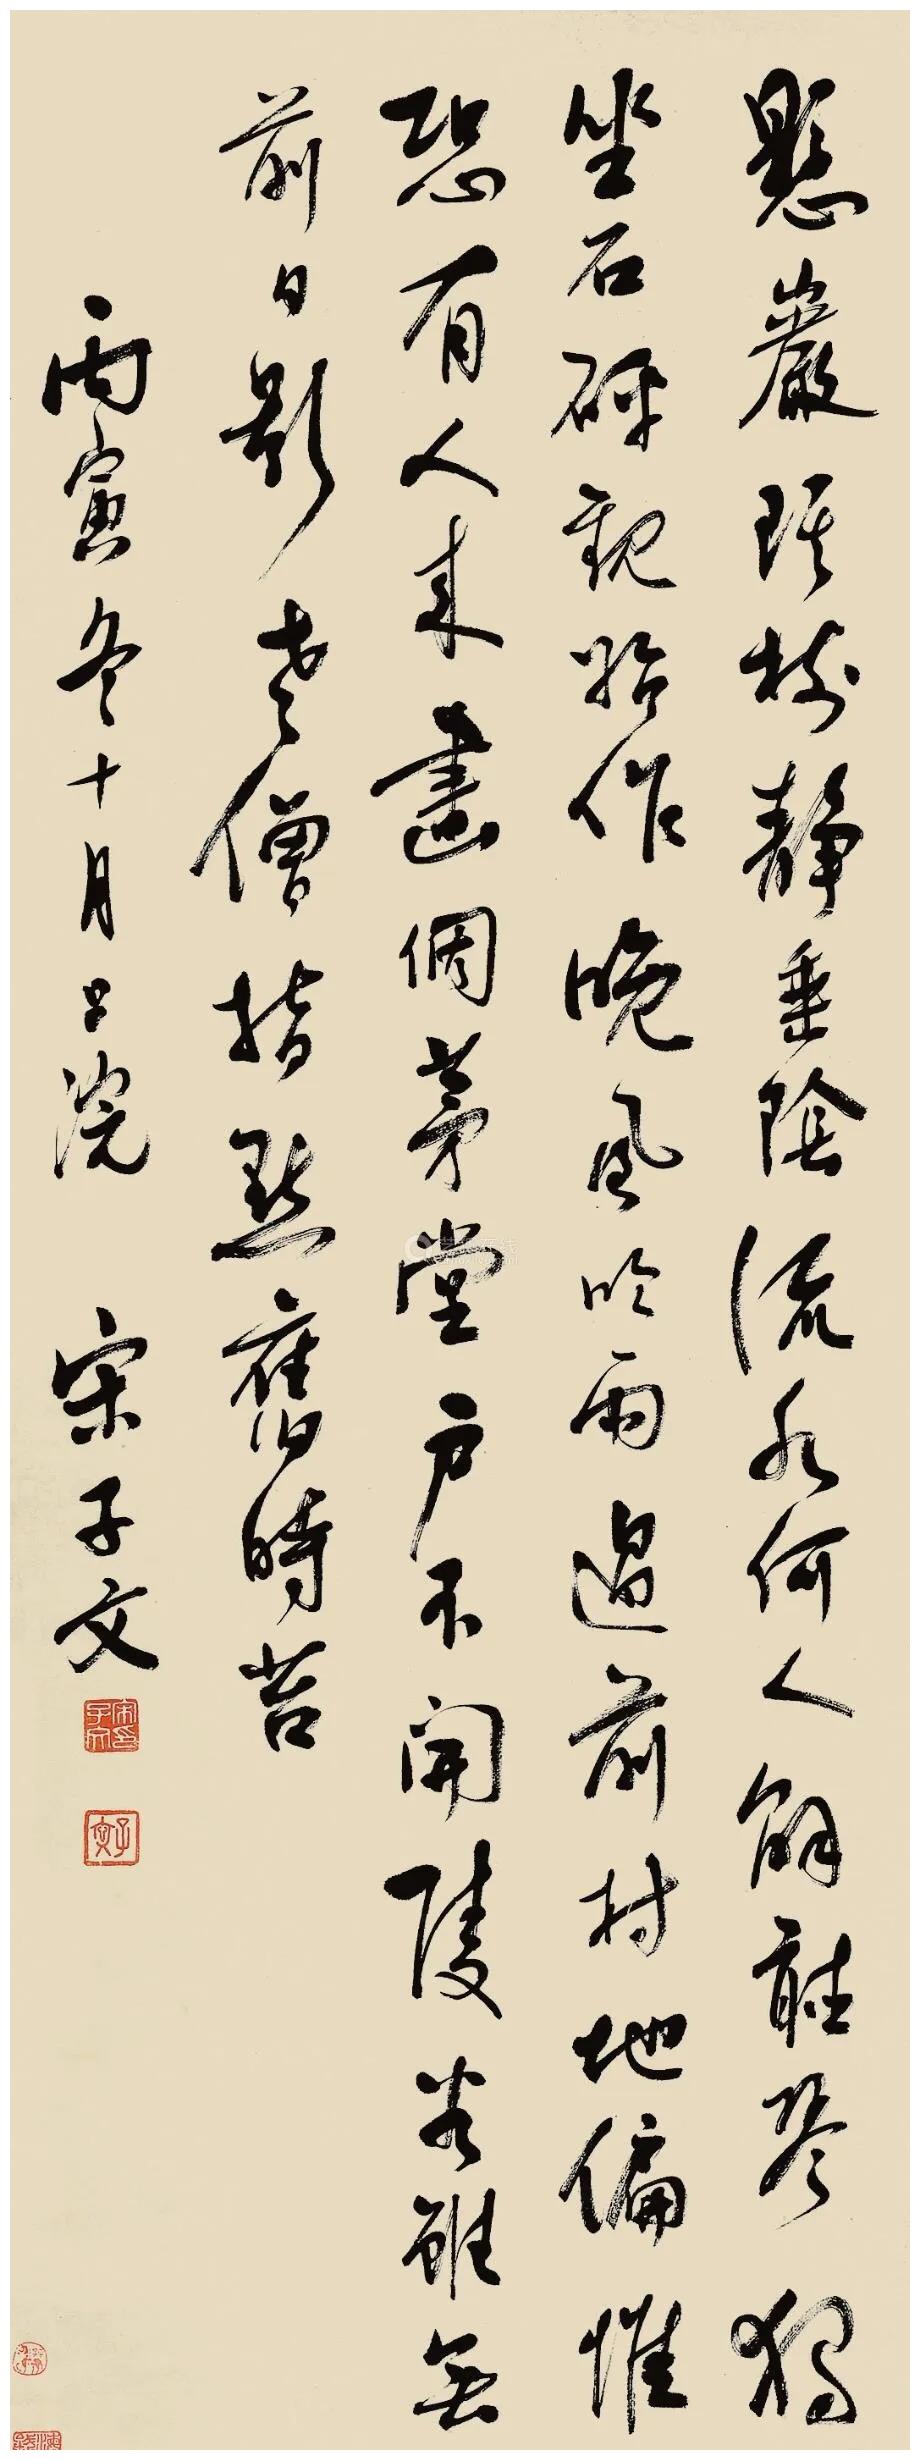 懸巖琪樹靜垂陰流水何人解聽琴獨
坐石砰觀始作晚風吹雨過前村地偏惟
恐有人來畫個茅堂戶不開陵谷雖無
前日影老僧指點舊時苔
丙寅冬十月浣 宋子文